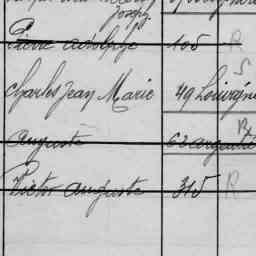 Joseph
Pierre Adolphe 105 R
S
Charles Jean Marie 49 Louvigné
Auguste 62
Victor Auguste 315 R